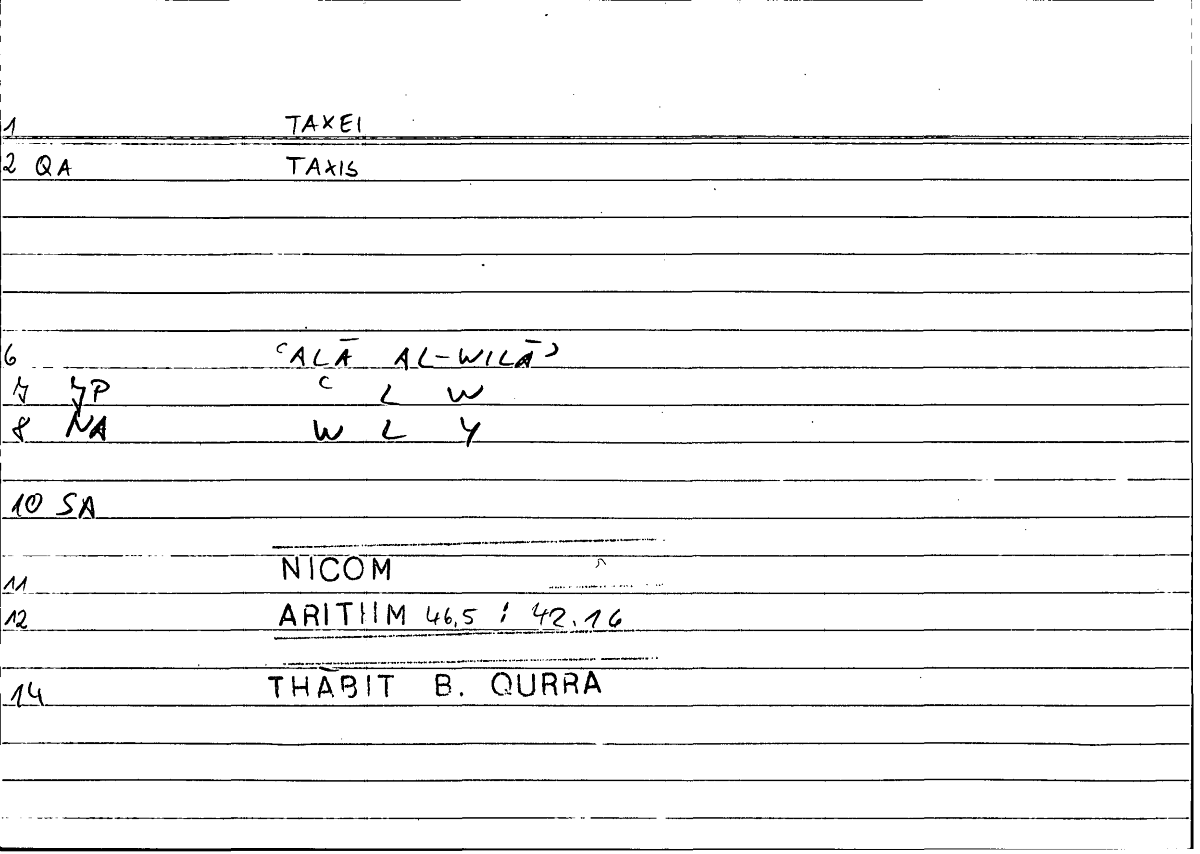 1 TAXEI
2 QA TAXIS
6 ʿALĀ AL-WILĀʾ
7 JP ʿ L W
8 NA W L Y
10 SA
11 NICOM
12 ARITHM 46,5 : 42.16
14 THĀBIT B. QURRA